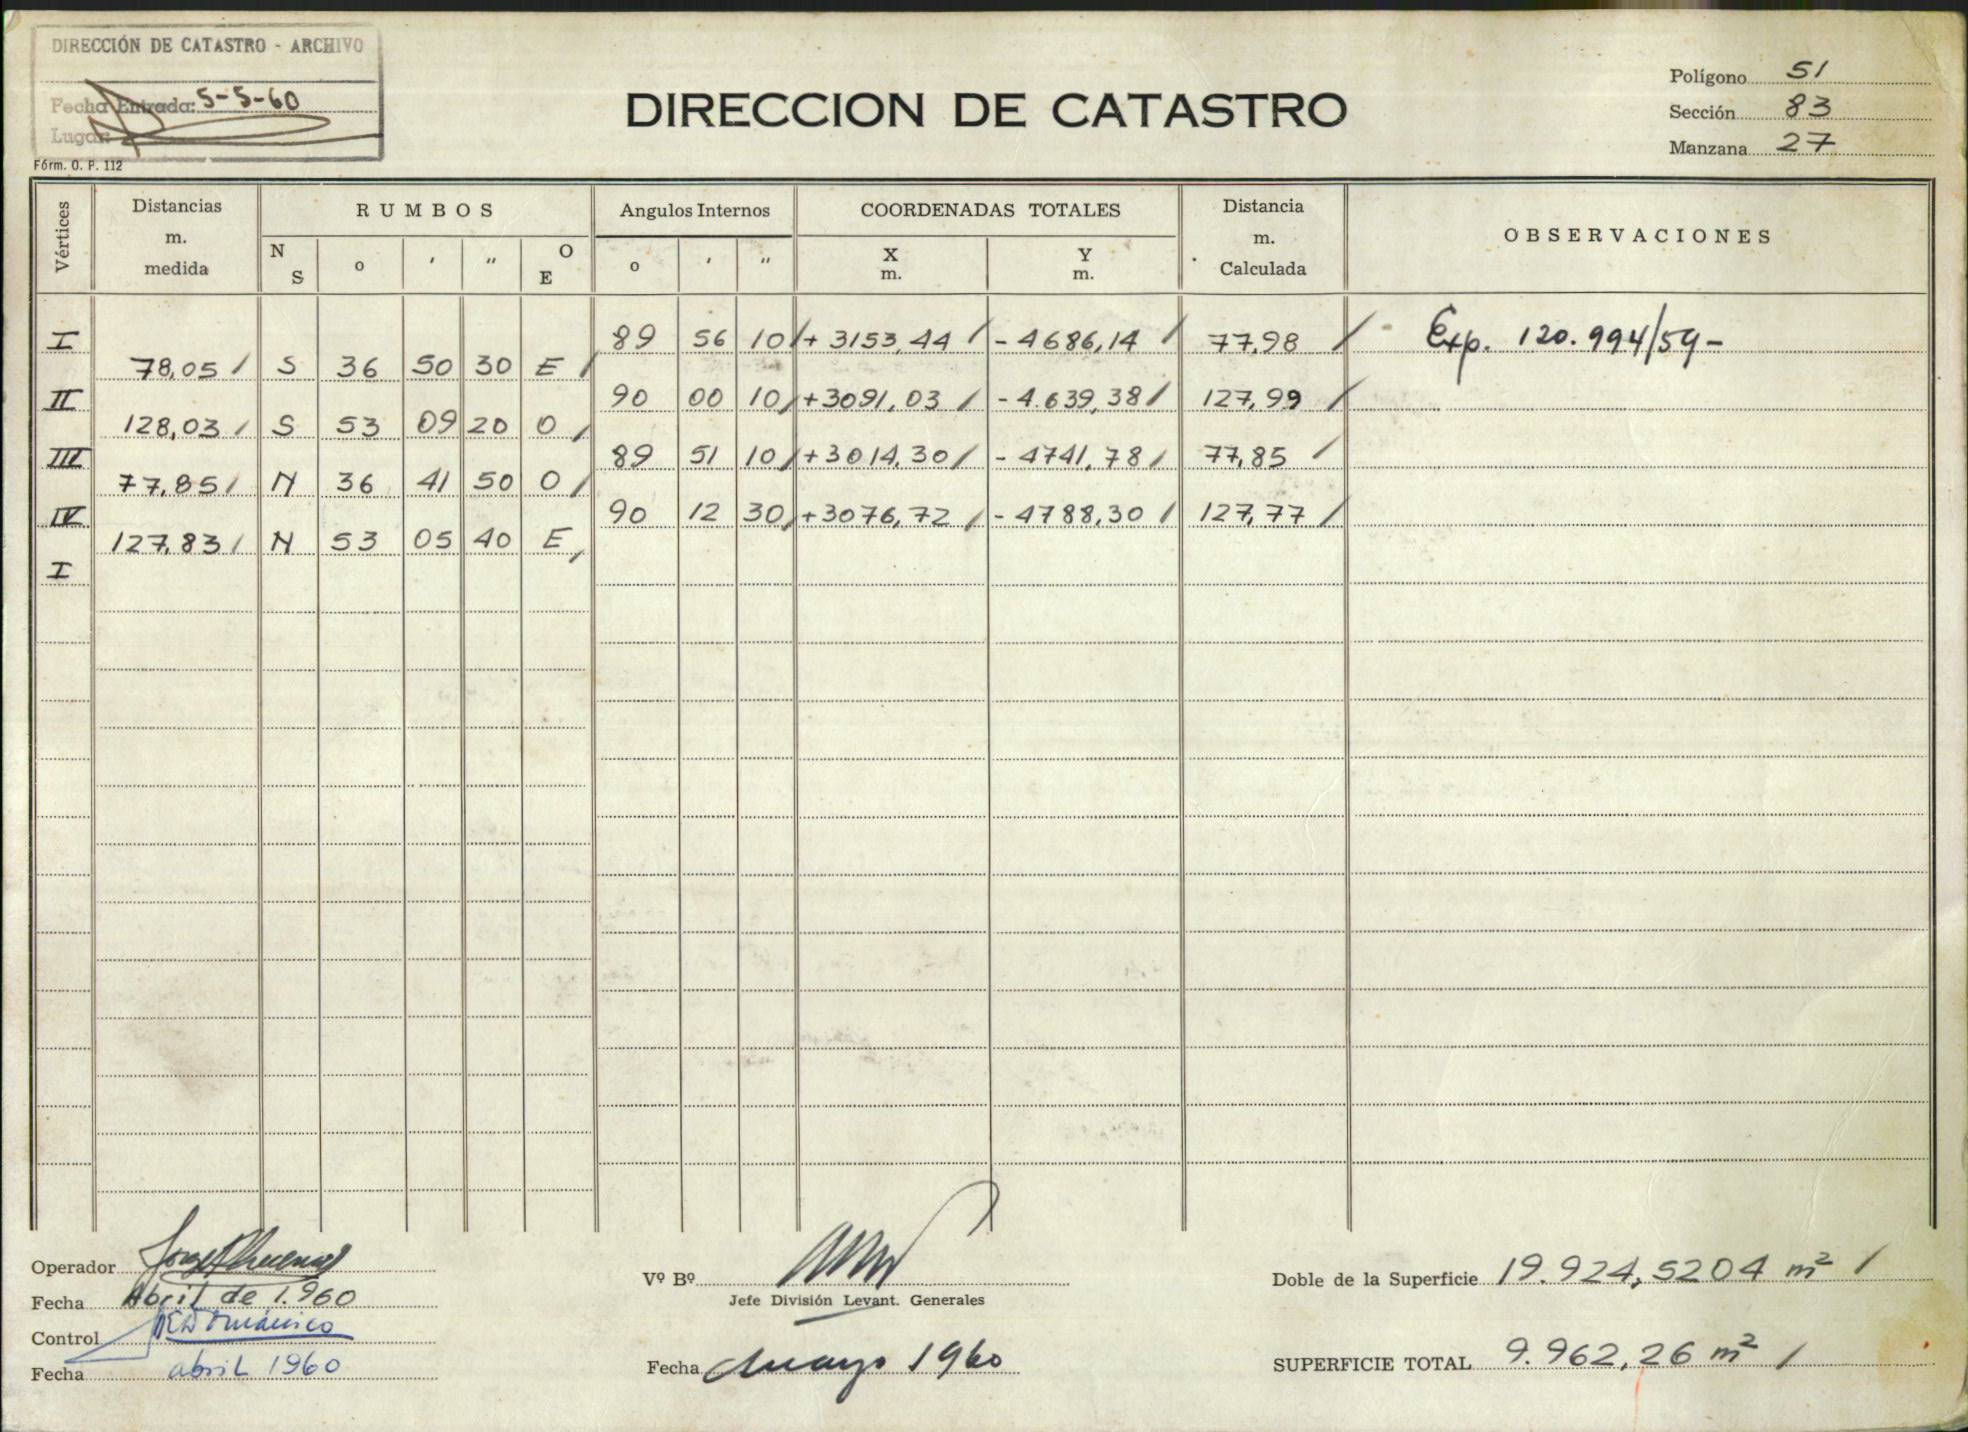 DIRECCIÓN DE CATASTRO - ARCHIVO
Fecha Entrada: 5-5-60
Lugar:
Fórm. O. P. 112
DIRECCION DE CATASTRO
Polígono 51
Sección 83
Manzana 27
Vértices Distancias m. medida RUMBOS Angulos Internos COORDENADAS TOTALES Distancia m. Calculada OBSERVACIONES
N S o ' " O E o ' " X m. Y m.
I 89 56 10 + 3153,44 - 4686,14 77,98 Exp. 120.994/59-
78,05 S 36 50 30 E
II 90 00 10 +3091,03 - 4.639,38 127,99
128,03 S 53 09 20 O
III 89 51 10 +3014,30 - 4741,78 77,85
77,85 N 36 41 50 O
IV 90 12 30 +3076,72 - 4788,30 127,77
127,83 N 53 05 40 E
I
Operador
Fecha Abril de 1.960
Control
Fecha abril 1960
Vº Bº
Jefe División Levant. Generales
Fecha Mayo 1960
Doble de la Superficie 19.924,5204 m²
SUPERFICIE TOTAL 9.962,26 m²